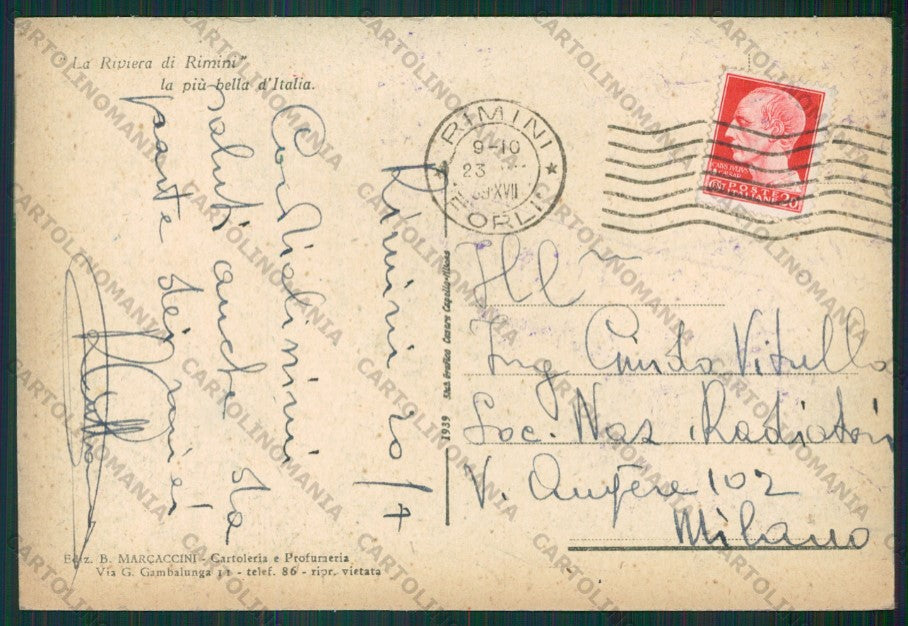 "La Riviera di Rimini"
la più bella d'Italia.
Rimini 20/7
Cordialissimi
saluti anche da
parte dei miei
RIMINI
9-10
23
39 XVII
FORLI
POSTE
ITALIANE 20
Ill mo
Ing Guido Vitullo
Soc. Naz Radiatori
V. Ampère 102
Milano
1939 Stab. Grafico Cesare Capello-Milano
Ediz. B. MARCACCINI - Cartoleria e Profumeria
Via G. Gambalunga 11 - telef. 86 - ripr. vietata
CARTOLINOMANIA